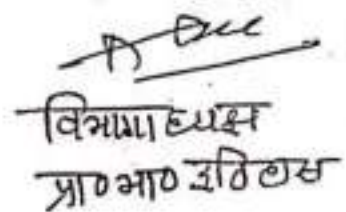 विभागाध्यक्ष
प्रा० भा० इतिहास